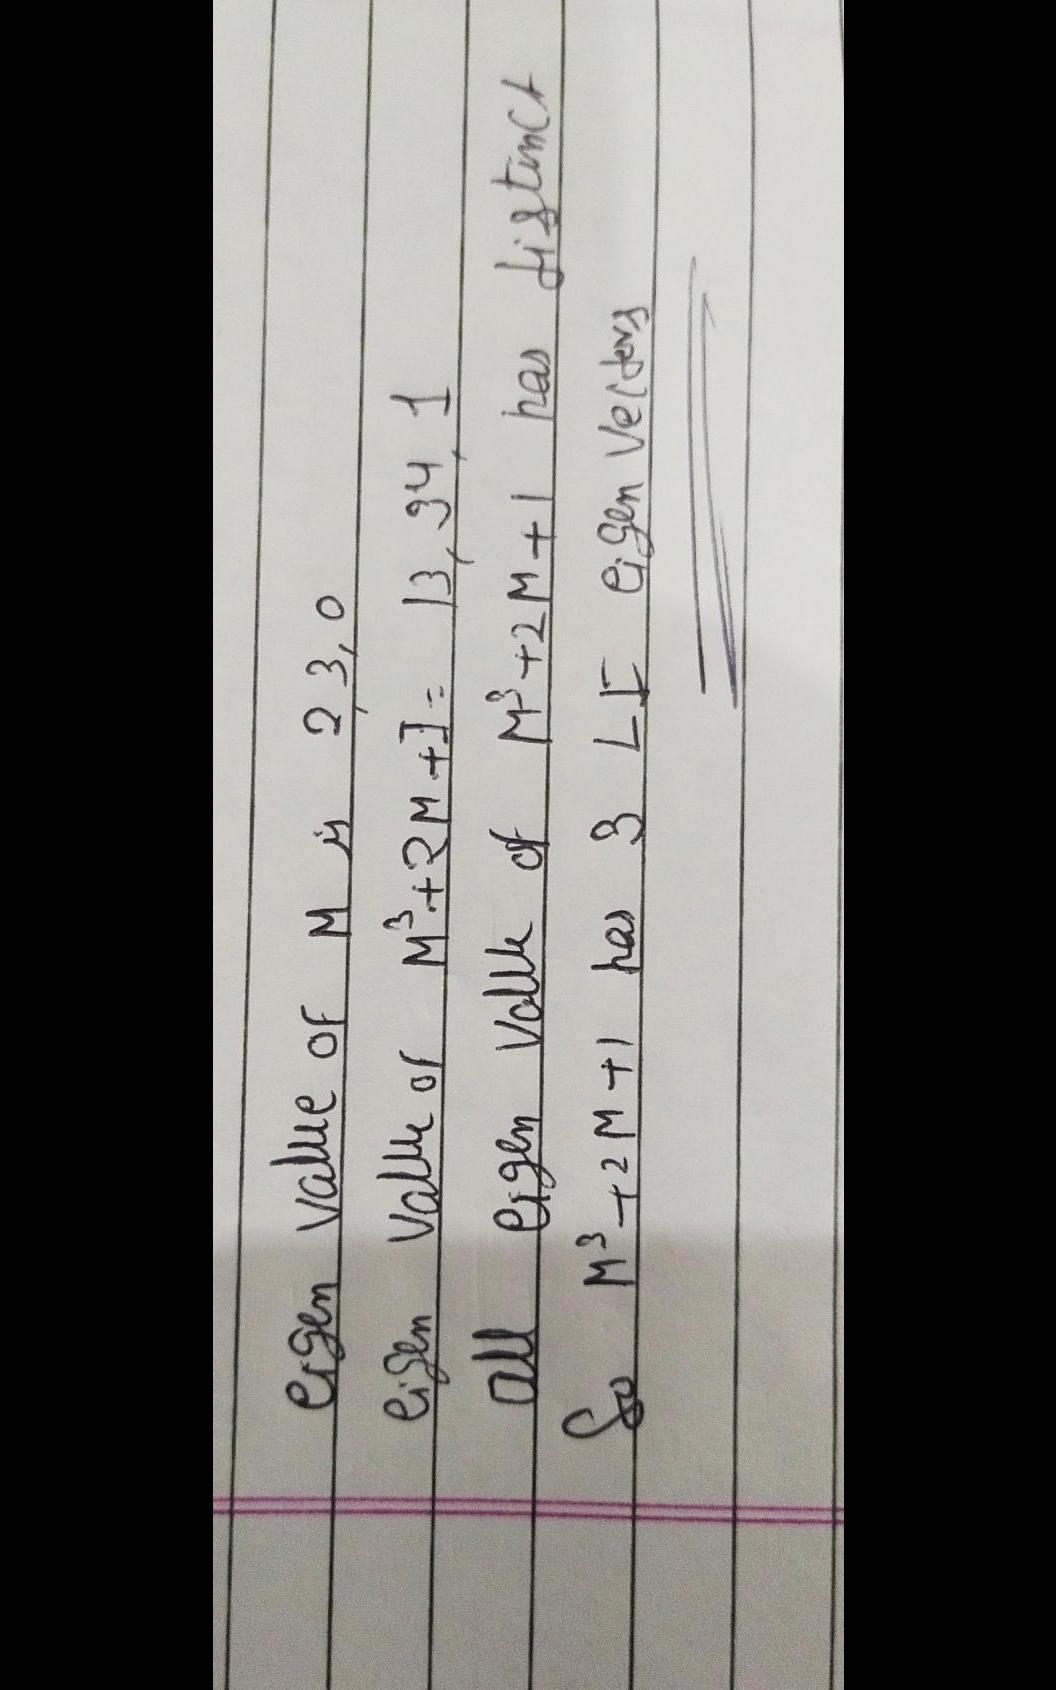 eigen value of M is 2, 3, 0
eigen value of M³+2M+I = 13, 34, 1
all eigen value of M³+2M+1 has distinct
So M³+2M+1 has 3 LI eigen vectors